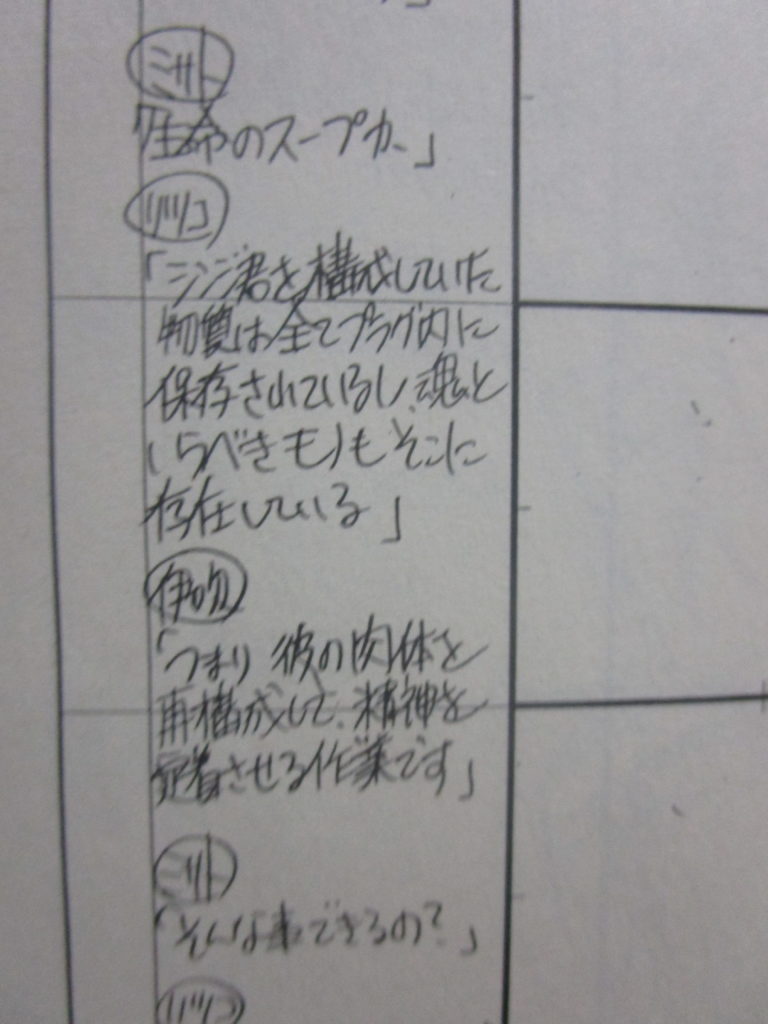 」
ミサト
「生命のスープか、」
リツコ
「シンジ君を構成していた
物質は全てプラグ内に
保存されているし、魂と
いうべきモノもそこに
存在している」
伊吹
「つまり 彼の肉体を
再構成して、精神を
定着させる作業です」
ミサト
「そんな事できるの?」
リツコ